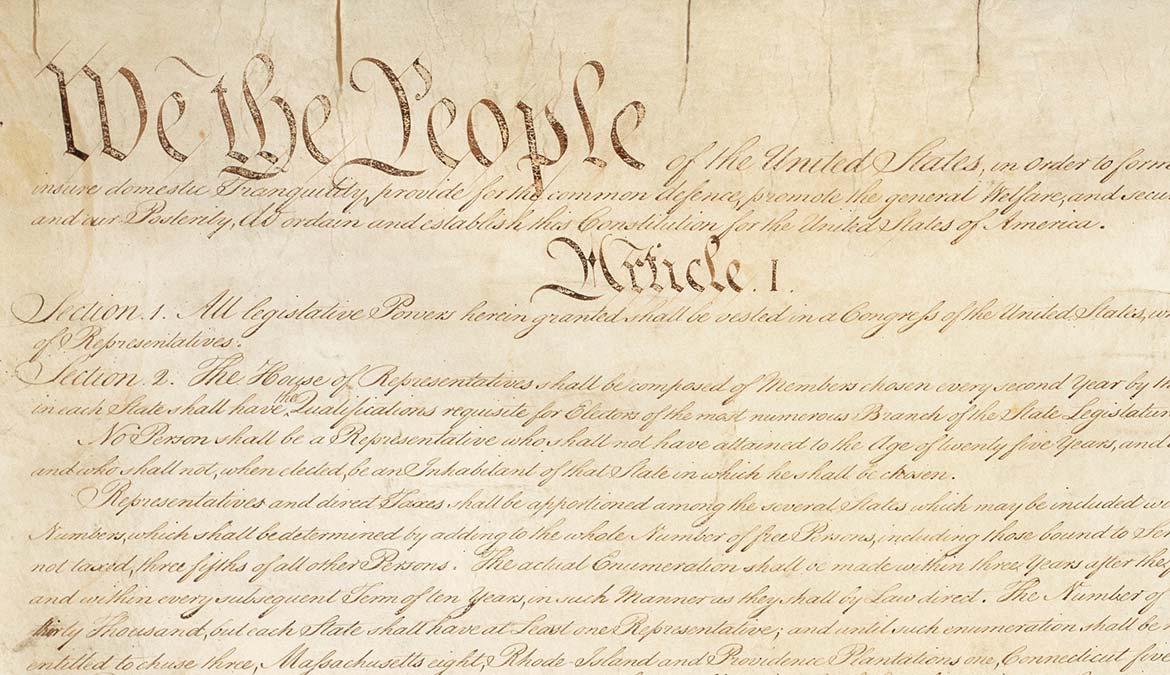 We the People of the United States, in order to form
insure domestic Tranquility, provide for the common defence, promote the general Welfare, and secu
and our Posterity, do ordain and establish this Constitution for the United States of America.
Article. I.
Section. 1. All legislative Powers herein granted shall be vested in a Congress of the United States, w
of Representatives.
Section. 2. The House of Representatives shall be composed of Members chosen every second Year by th
in each State shall have the Qualifications requisite for Electors of the most numerous Branch of the State Legislatur
No Person shall be a Representative who shall not have attained to the Age of twenty five Years, and
and who shall not, when elected, be an Inhabitant of that State in which he shall be chosen.
Representatives and direct Taxes shall be apportioned among the several States which may be included w
Numbers, which shall be determined by adding to the whole Number of free Persons, including those bound to Ser
not taxed, three fifths of all other Persons. The actual Enumeration shall be made within three Years after the
and within every subsequent Term of ten Years, in such Manner as they shall by Law direct. The Number of
thirty Thousand, but each State shall have at Least one Representative; and until such enumeration shall be
entitled to chuse three, Massachusetts eight, Rhode-Island and Providence Plantations one, Connecticut five